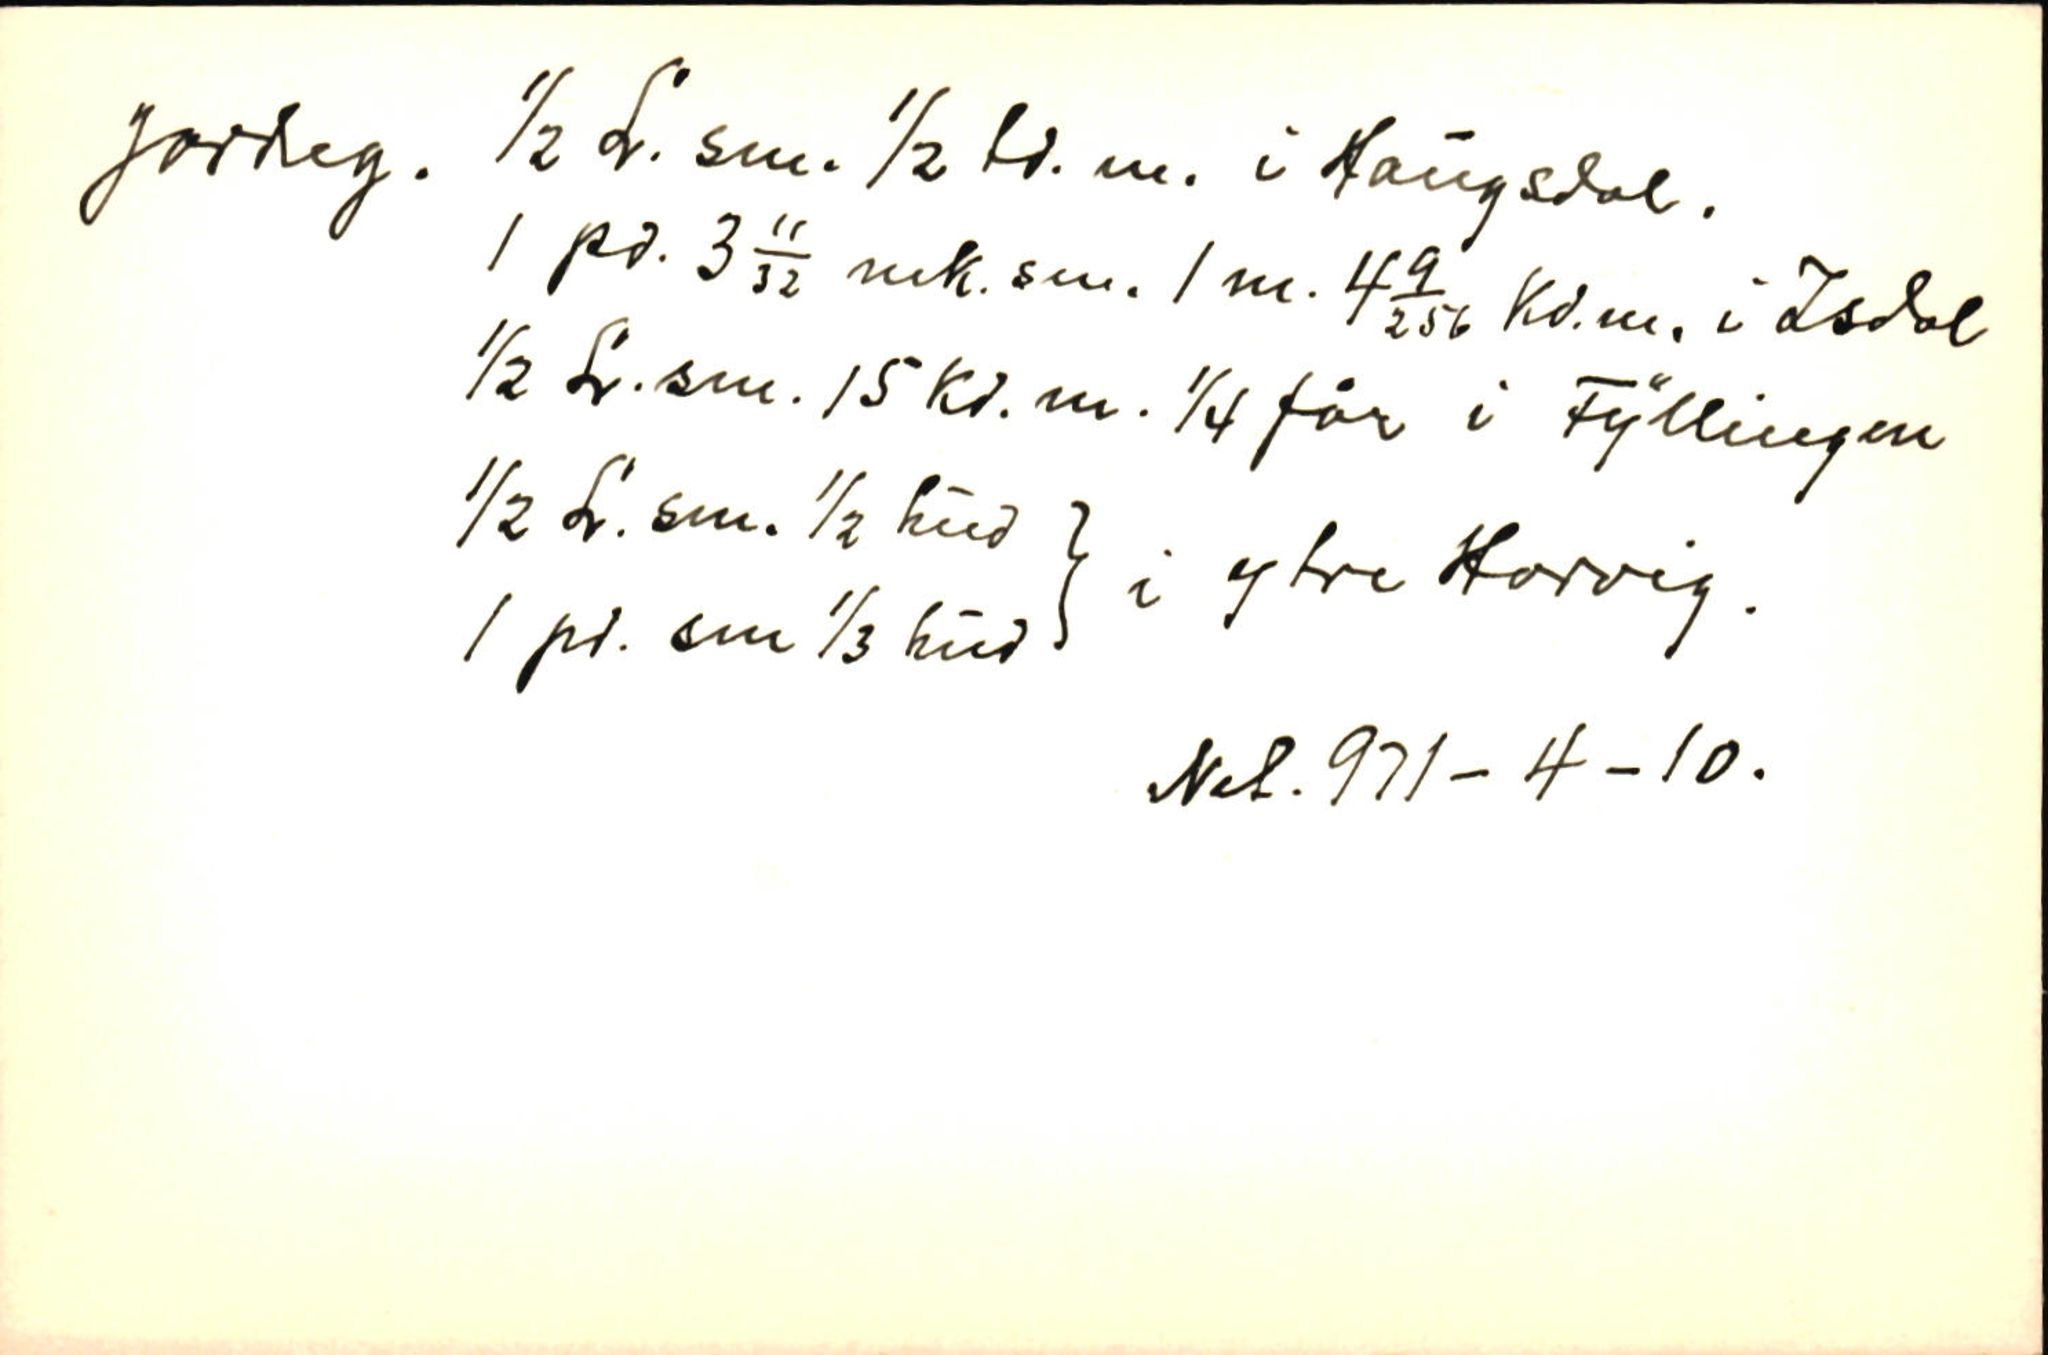 Jordeg. 1/2 L. sm. 1/2 td. m. i Haugsdal.
1 pd. 3 11/32 mk. sm. 1 m. 4 9/256 Kd. m. i Isdal
1/2 L. sm. 15 Kd. m. 1/4 får i Fÿllingen
1/2 L. sm. 1/2 hud
1 pd. sm 1/3 hud } i ytre Horvig.
Net. 971-4-10.